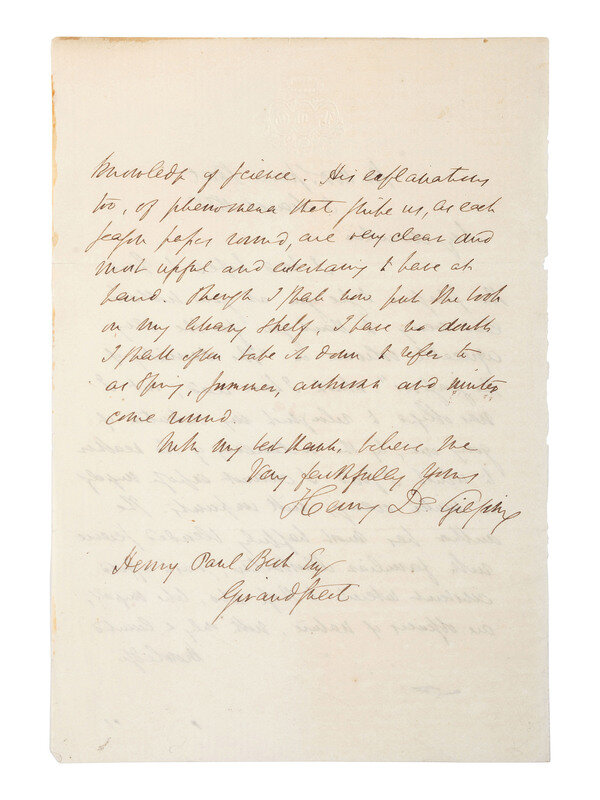 knowledge of science. His explanations
too, of phenomena that strike us, as each
season passes round, are very clear and
most useful and entertaining to have at
hand. Though I shall now put the book
on my library shelf, I have no doubt
I shall often take it down to refer to
as Spring, Summer, autumn and winter
come round.
With my best thanks, believe me
Very faithfully yours
Henry D. Gilpin
Henry Paul Beck Esq
Girard Street